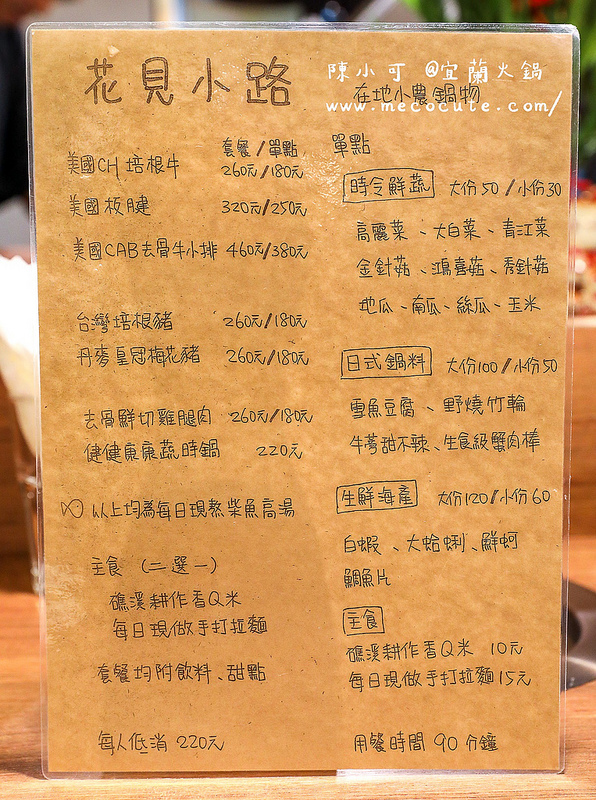 花見小路
陳小可 @宜蘭火鍋
在地小農鍋物
www.mecocute.com/
套餐/單點
美國CH培根牛 260元/180元
美國板腱 320元/250元
美國CAB去骨牛小排 460元/380元
台灣培根豬 260元/180元
丹麥皇冠梅花豬 260元/180元
去骨鮮切雞腿肉 260元/180元
健健康康蔬時鍋 220元
以上均為每日現熬柴魚高湯
主食 (二選一)
礁溪耕作香Q米
每日現做手打拉麵
套餐均附飲料、甜點
每人低消 220元
單點
時令鮮蔬 大份50/小份30
高麗菜、大白菜、青江菜
金針菇、鴻喜菇、秀針菇
地瓜、南瓜、絲瓜、玉米
日式鍋料 大份100/小份50
雪魚豆腐、野燒竹輪
牛蒡甜不辣、生食級蟹肉棒
生鮮海產 大份120/小份60
白蝦、大蛤蜊、鮮蚵
鯛魚片
主食
礁溪耕作香Q米 10元
每日現做手打拉麵15元
用餐時間 90 分鐘